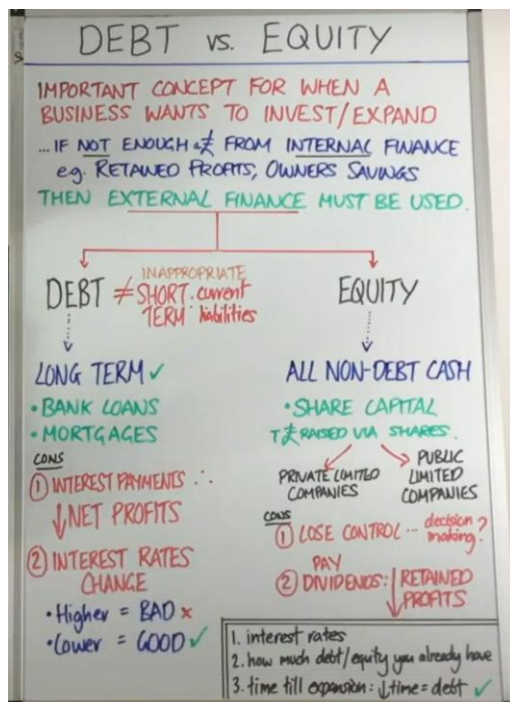 DEBT vs. EQUITY
IMPORTANT CONCEPT FOR WHEN A
BUSINESS WANTS TO INVEST/EXPAND
...IF NOT ENOUGH £ FROM INTERNAL FINANCE
eg. RETAINED PROFITS, OWNERS SAVINGS
THEN EXTERNAL FINANCE MUST BE USED.
DEBT ≠ INAPPROPRIATE
SHORT : current
TERM liabilities
LONG TERM ✓
• BANK LOANS
• MORTGAGES
CONS
① INTEREST PAYMENTS ∴
↓ NET PROFITS
② INTEREST RATES
CHANGE
• Higher = BAD ×
• Lower = GOOD ✓
EQUITY
ALL NON-DEBT CASH
• SHARE CAPITAL
↑£ RAISED VIA SHARES.
PRIVATE LIMITED
COMPANIES
PUBLIC
LIMITED
COMPANIES
CONS
① LOSE CONTROL ... decision
making?
② PAY
DIVIDENDS: ↓ RETAINED
PROFITS
1. interest rates
2. how much debt/equity you already have
3. time till expansion: ↓time = debt ✓